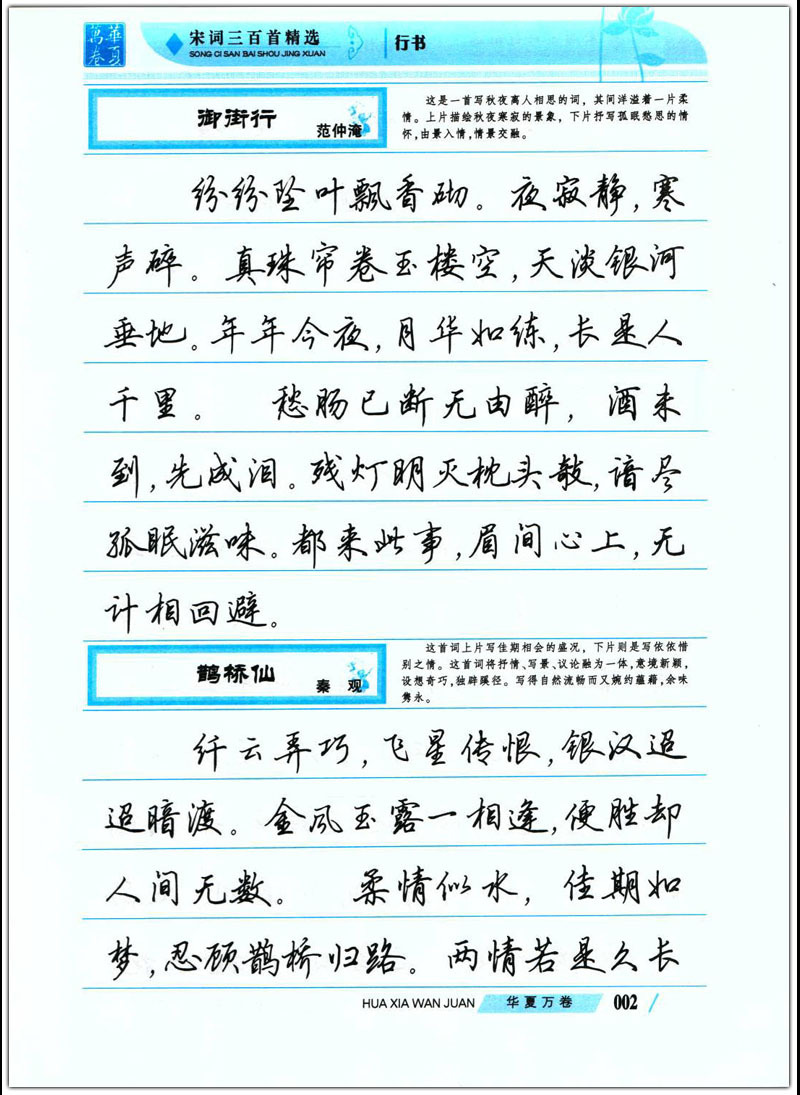 華夏
萬卷
宋词三百首精选
SONG CI SAN BAI SHOU JING XUAN
行书
御街行
范仲淹
这是一首写秋夜离人相思的词，其间洋溢着一片柔
情。上片描绘秋夜寒寂的景象，下片抒写孤眠愁思的情
怀，由景入情，情景交融。
纷纷坠叶飘香砌。夜寂静，寒
声碎。真珠帘卷玉楼空，天淡银河
垂地。年年今夜，月华如练，长是人
千里。 愁肠已断无由醉，酒未
到，先成泪。残灯明灭枕头敧，谙尽
孤眠滋味。都来此事，眉间心上，无
计相回避。
鹊桥仙
秦 观
这首词上片写佳期相会的盛况，下片则是写依依惜
别之情。这首词将抒情、写景、议论融为一体，意境新颖，
设想奇巧，独辟蹊径。写得自然流畅而又婉约蕴藉，余味
隽永。
纤云弄巧，飞星传恨，银汉迢
迢暗渡。金风玉露一相逢，便胜却
人间无数。 柔情似水，佳期如
梦，忍顾鹊桥归路。两情若是久长
HUA XIA WAN JUAN 华夏万卷 002